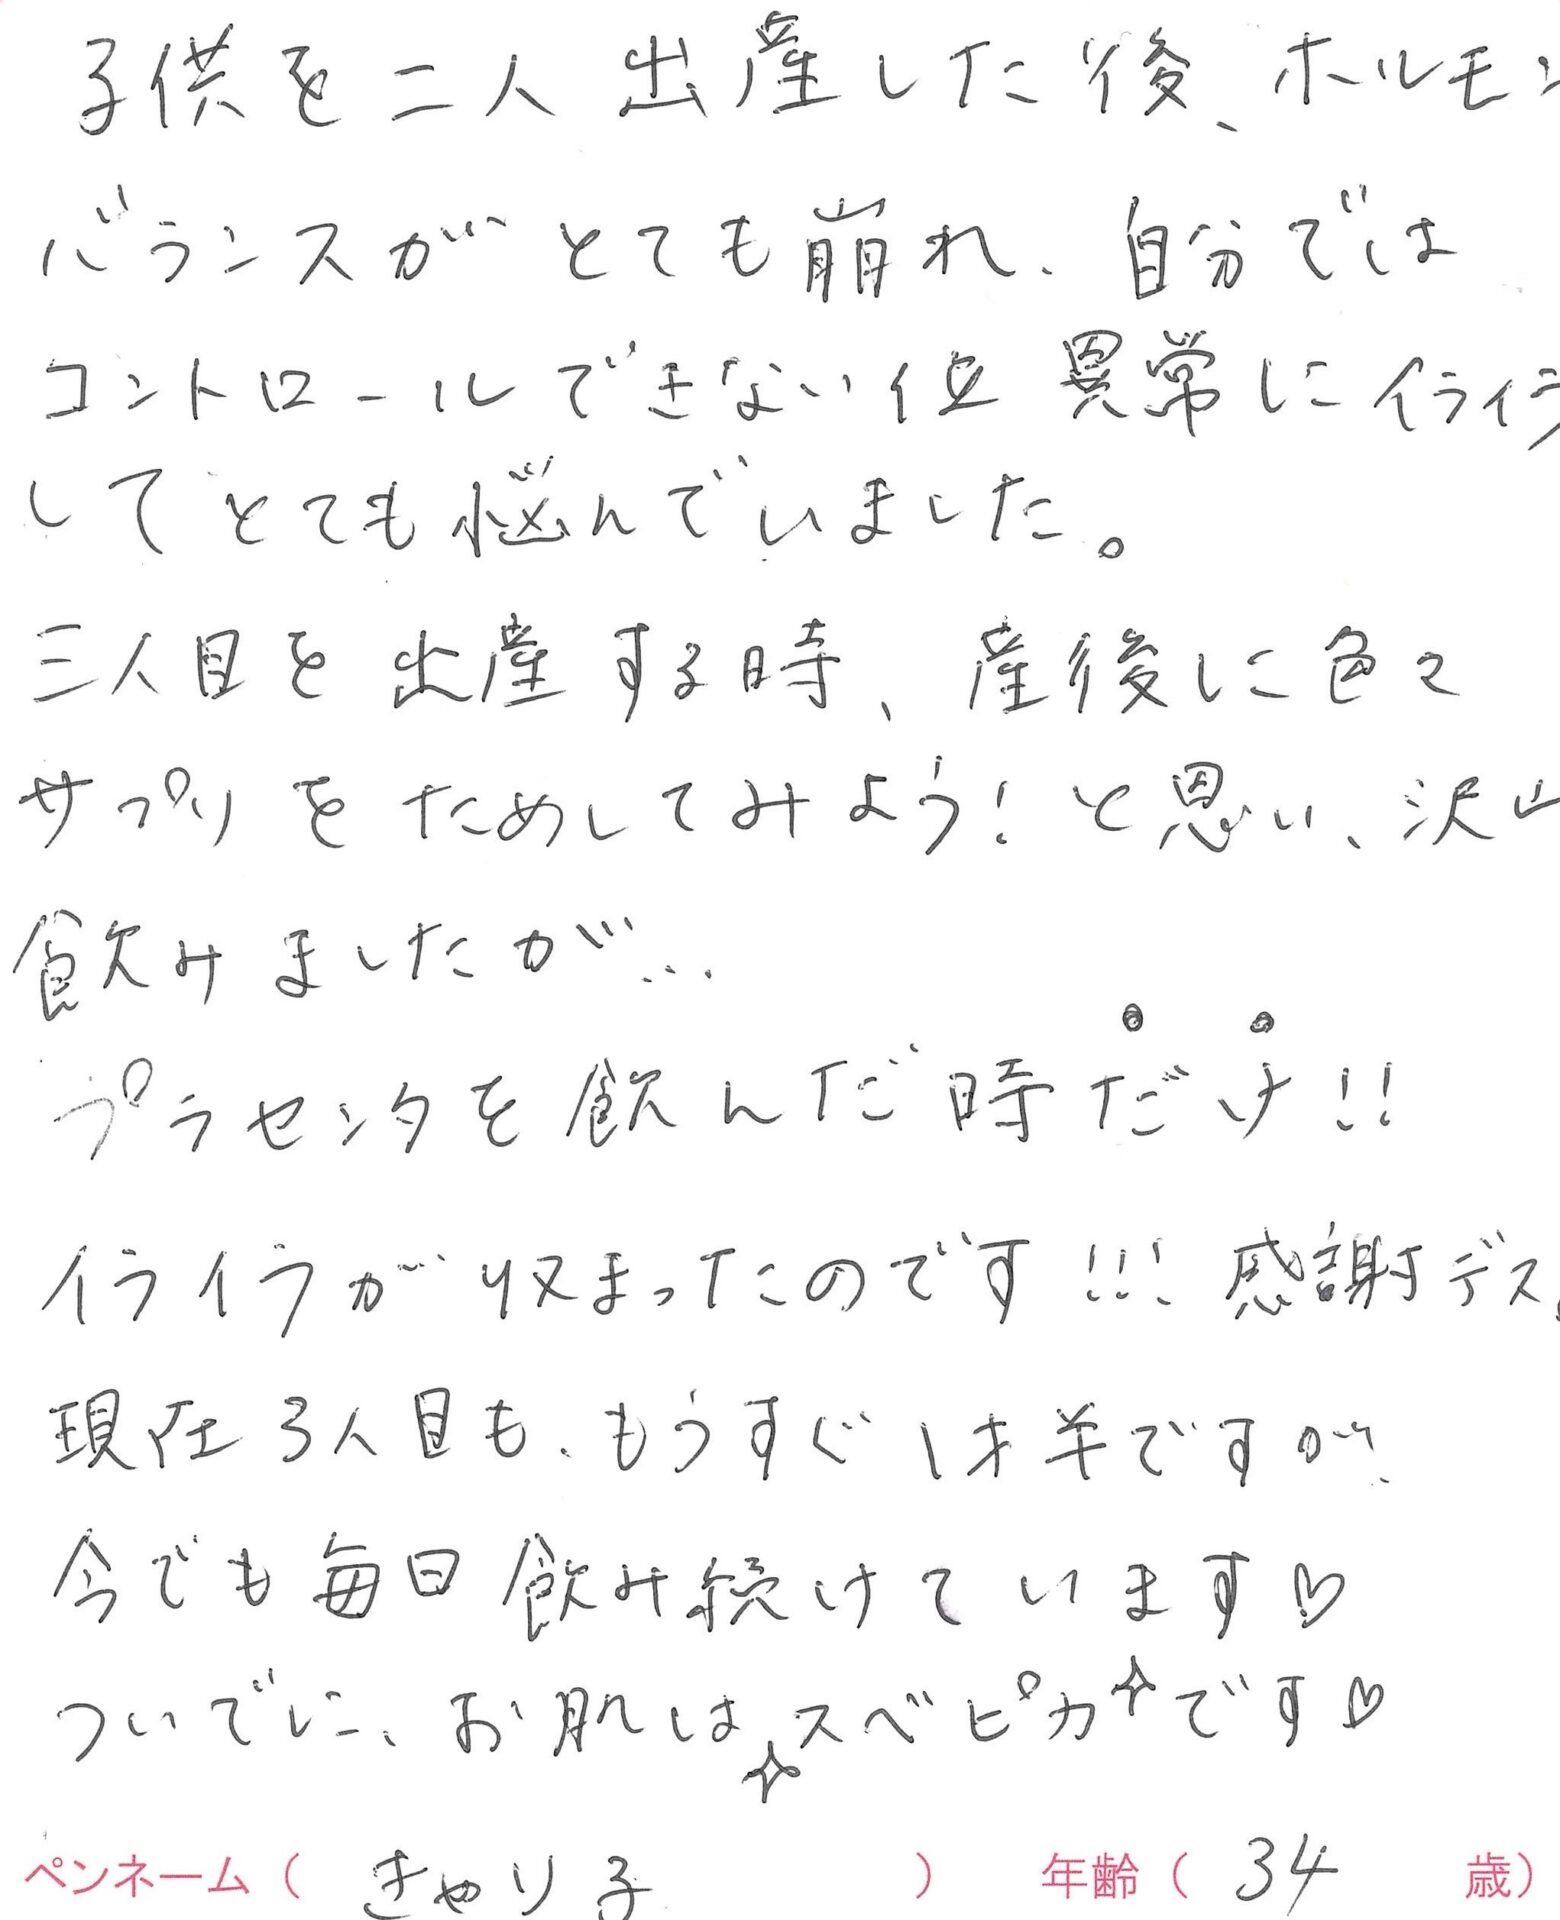 子供を二人出産した後、ホルモン
バランスがとても崩れ、自分では
コントロールできない位異常にイライラ
してとても悩んでいました。
三人目を出産する時、産後に色々
サプリをためしてみよう!と思い、沢山
飲みましたが…
プラセンタを飲んだ時だけ!!
イライラが収まったのです!!! 感謝デス。
現在3人目も、もうすぐ1才半ですが、
今でも毎日飲み続けています♡
ついでに、お肌はスベピカ✧です♡
ペンネーム(きゃり子) 年齢(34歳)